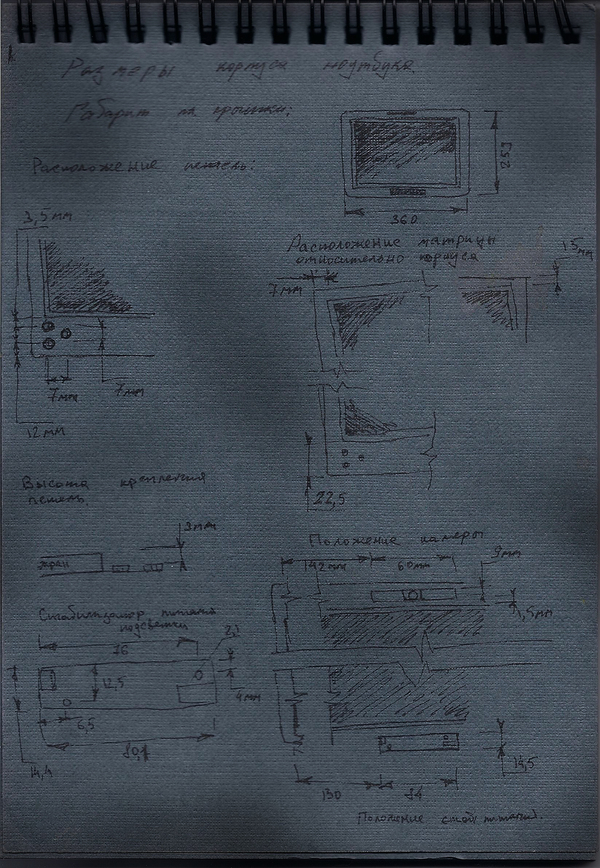 Размеры корпуса ноутбука.
Габарит по крышки:
Расположение петель:
253
360
3,5мм
7мм
7мм
12мм
Расположение матрицы
относительно корпуса
15мм
7мм
22,5
Высота крепления
петель.
3мм
экран
Положение камеры
142мм
60мм
9мм
1,5мм
Стабилизатор питания
подсветки
76
12,5
4мм
6,5
14,4
14,5
130
84
Положение стаб питания.